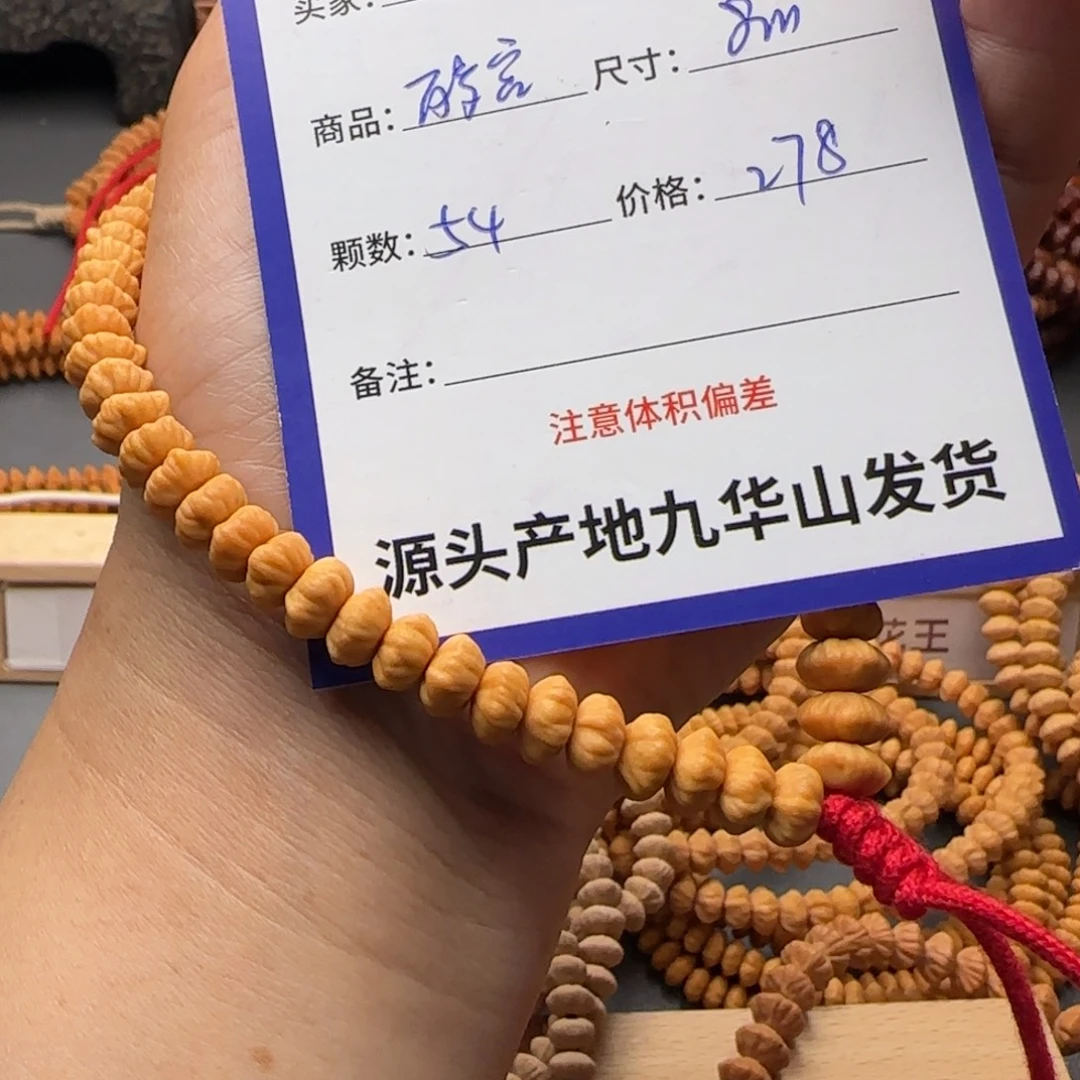 买家:
商品: 酵宫 尺寸: 8m
颗数: 54 价格: 278
备注:
注意体积偏差
源头产地九华山发货
花王